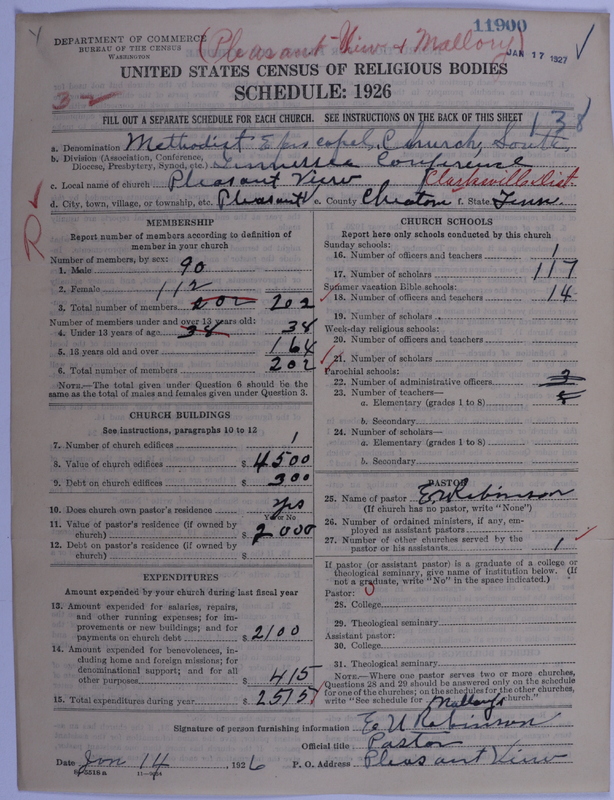 11900
DEPARTMENT OF COMMERCE
BUREAU OF THE CENSUS
WASHINGTON
(Pleasant View + Mallory)
JAN 17 1927
UNITED STATES CENSUS OF RELIGIOUS BODIES
SCHEDULE: 1926
FILL OUT A SEPARATE SCHEDULE FOR EACH CHURCH. SEE INSTRUCTIONS ON THE BACK OF THIS SHEET
138
a. Denomination Methodist Episcopal Church, South
b. Division (Association, Conference,
Diocese, Presbytery, Synod, etc.) Tennessee Conference
c. Local name of church Pleasant View Clarksville Dist
d. City, town, village, or township, etc. Pleasant V e. County Cheatom f. State Tenn.
R
MEMBERSHIP
Report number of members according to definition of
member in your church
Number of members, by sex:
1. Male 90
2. Female 112
3. Total number of members 202 202
Number of members under and over 13 years old:
4. Under 13 years of age 38 38
5. 13 years old and over 164
6. Total number of members 202
NOTE.—The total given under Question 6 should be the
same as the total of males and females given under Question 3.
CHURCH BUILDINGS
See instructions, paragraphs 10 to 12
7. Number of church edifices 1
8. Value of church edifices $ 4500
9. Debt on church edifices $ 300
10. Does church own pastor's residence yes
Yes or No
11. Value of pastor's residence (if owned by
church) $ 2000
12. Debt on pastor's residence (if owned by
church) $
EXPENDITURES
Amount expended by your church during last fiscal year
13. Amount expended for salaries, repairs,
and other running expenses; for im-
provements or new buildings; and for
payments on church debt $ 2100
14. Amount expended for benevolences, in-
cluding home and foreign missions; for
denominational support; and for all
other purposes $ 415
15. Total expenditures during year $ 2515
CHURCH SCHOOLS
Report here only schools conducted by this church
Sunday schools:
16. Number of officers and teachers 1
17. Number of scholars 117
Summer vacation Bible schools:
18. Number of officers and teachers 14
19. Number of scholars
Week-day religious schools:
20. Number of officers and teachers
21. Number of scholars
Parochial schools:
22. Number of administrative officers
23. Number of teachers—
a. Elementary (grades 1 to 8)
b. Secondary
24. Number of scholars—
a. Elementary (grades 1 to 8)
b. Secondary
PASTOR
25. Name of pastor E U Robinson
(If church has no pastor, write "None")
26. Number of ordained ministers, if any, em-
ployed as assistant pastors
27. Number of other churches served by the
pastor or his assistants 1
If pastor (or assistant pastor) is a graduate of a college or
theological seminary, give name of institution below. (If
not a graduate, write "No" in the space indicated.)
Pastor:
28. College
29. Theological seminary
Assistant pastor:
30. College
31. Theological seminary
NOTE.—Where one pastor serves two or more churches,
Questions 28 and 29 should be answered only on the schedule
for one of the churches; on the schedules for the other churches,
write "See schedule for Mallorys church."
Signature of person furnishing information E U Robinson
Official title Pastor
Date Jan 14, 1926 P. O. Address Pleasant View
8-5518 a